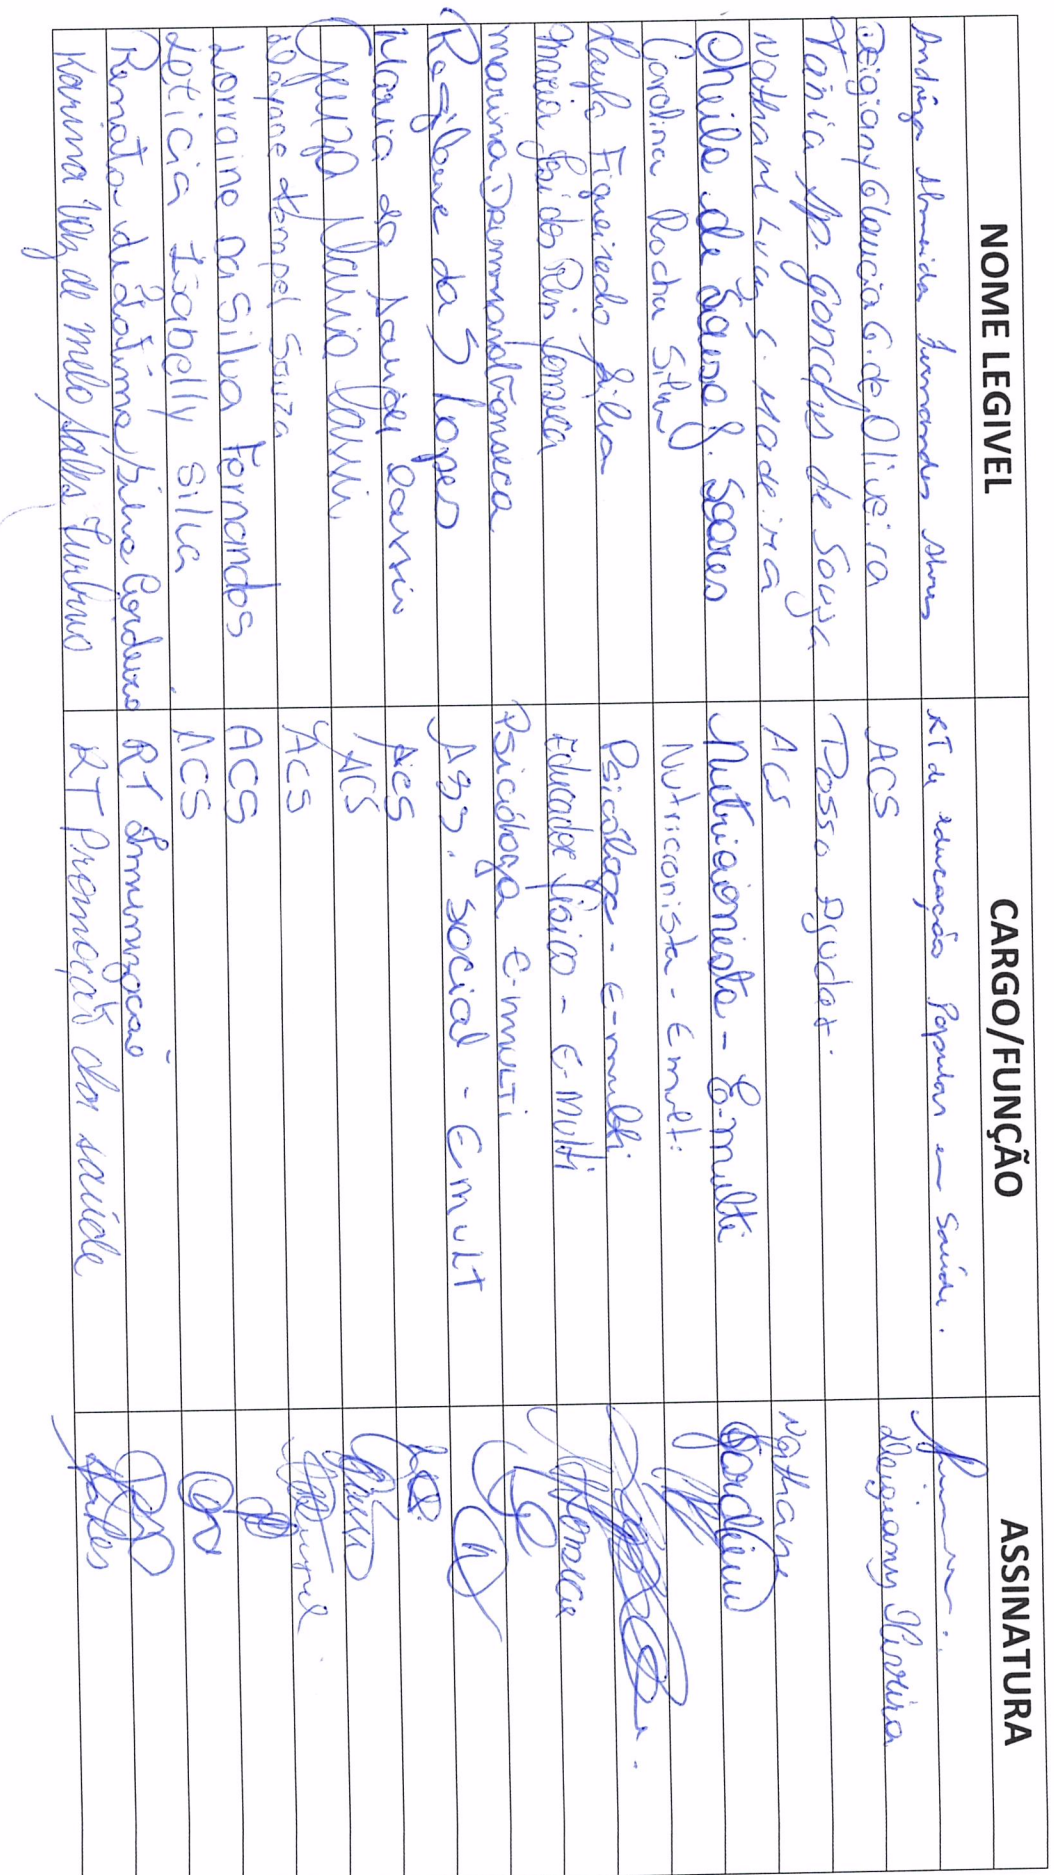 NOME LEGIVEL CARGO/FUNÇÃO ASSINATURA
Andréza Almeida Fernandes Alves RT de educação Popular em Saúde.
Deigiany Glaucia G. de Oliveira ACS Deigiany Oliveira
Tânia Ap. Gonçalves de Souza Posso Ajudar.
Nathane Luan S. Madeira ACS Nathane
Cheila de Sousa G. Soares Nutricionista - E-multi
Carolina Rocha Silva Nutricionista - Emulti
Layla Figueiredo Silva Psicóloga - E-multi
Maria José dos Reis Fonseca Educador físico - E-Multi Fonseca
Marina Drummond Fonseca Psicóloga E-multi
Rosilane da S Lopes Ass. Social - Emult
Maria da ACS
ACS
Dayane Hempel Souza ACS
Lorraine da Silva Fernandes ACS
Leticia Isabelly Silva ACS
Renata de Fátima Silva Cordeiro RT Imunização
Karina Vaz de Melo Sales Turbino RT Promoção da saúde Sales